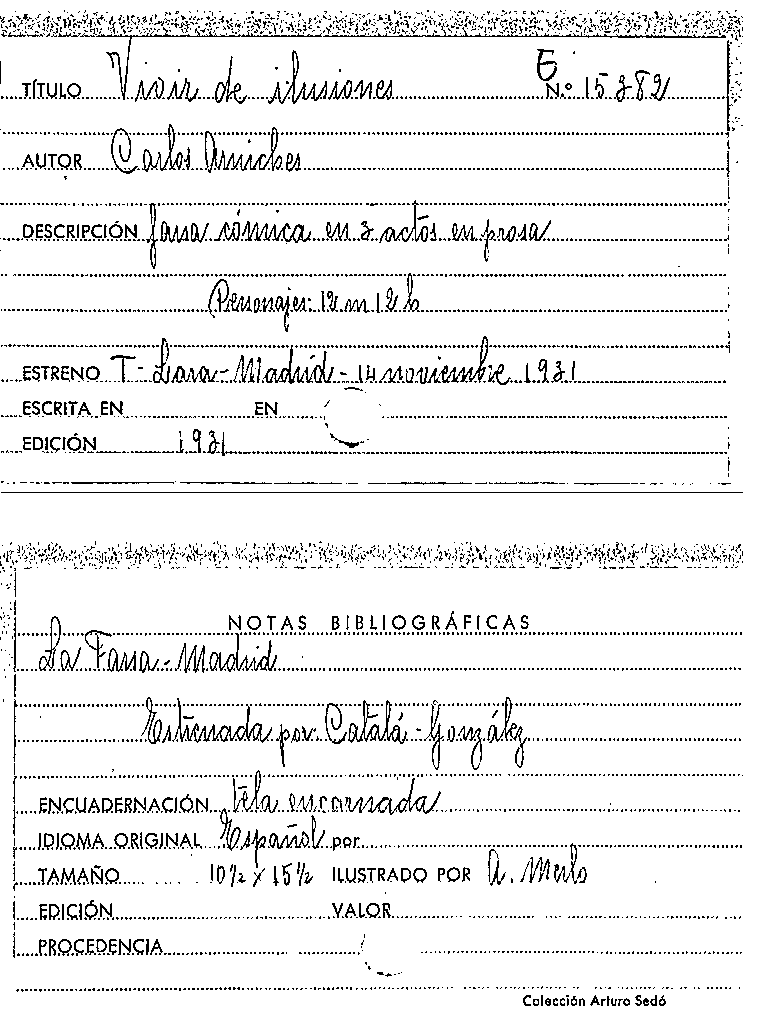 E
TÍTULO Vivir de ilusiones N.º 15382
AUTOR Carlos Arniches
DESCRIPCIÓN farsa cómica en 3 actos en prosa
Personajes: 12 m 12 h
ESTRENO T- Lara - Madrid - 14 noviembre 1931
ESCRITA EN EN
EDICIÓN 1931
NOTAS BIBLIOGRÁFICAS
La Farsa - Madrid
Estrenada por: Catalá - González
ENCUADERNACIÓN tela encarnada
IDIOMA ORIGINAL Español por
TAMAÑO 10½ x 15½ ILUSTRADO POR A. Merlo
EDICIÓN VALOR
PROCEDENCIA
Colección Arturo Sedó